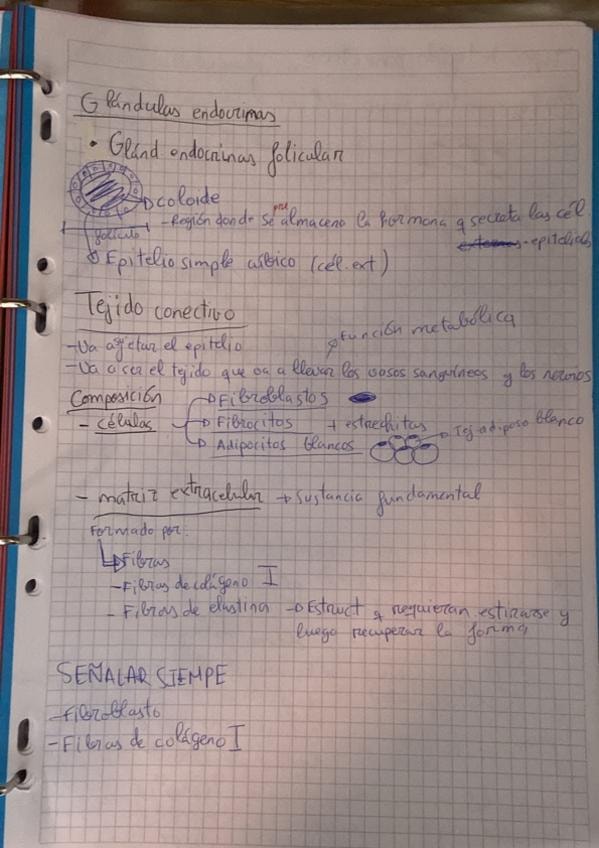 Glándulas endocrinas
• Gland endocrinas folicular
coloide
- Región donde se pre almaceno la hormona q secreta las cél.
externas - epitelial
folículo
Epitelio simple cúbico (cél. ext)
Tejido conectivo
función metabólica
- Va a sujetar el epitelio
- Va a ser el tejido que va a llevar los vasos sanguíneos y los nervios
Composición
- células
Fibroblastos
Fibrocitos + estrechitas
Adipocitos blancos
Tej adiposo blanco
- matriz extracelular → sustancia fundamental
Formado por:
Fibras
- Fibras de colágeno I
- Fibras de elastina → Estruct q requieran estirarse y
luego recuperar la forma
SEÑALAR SIEMPE
- Fibroblasto
- Fibras de colágeno I